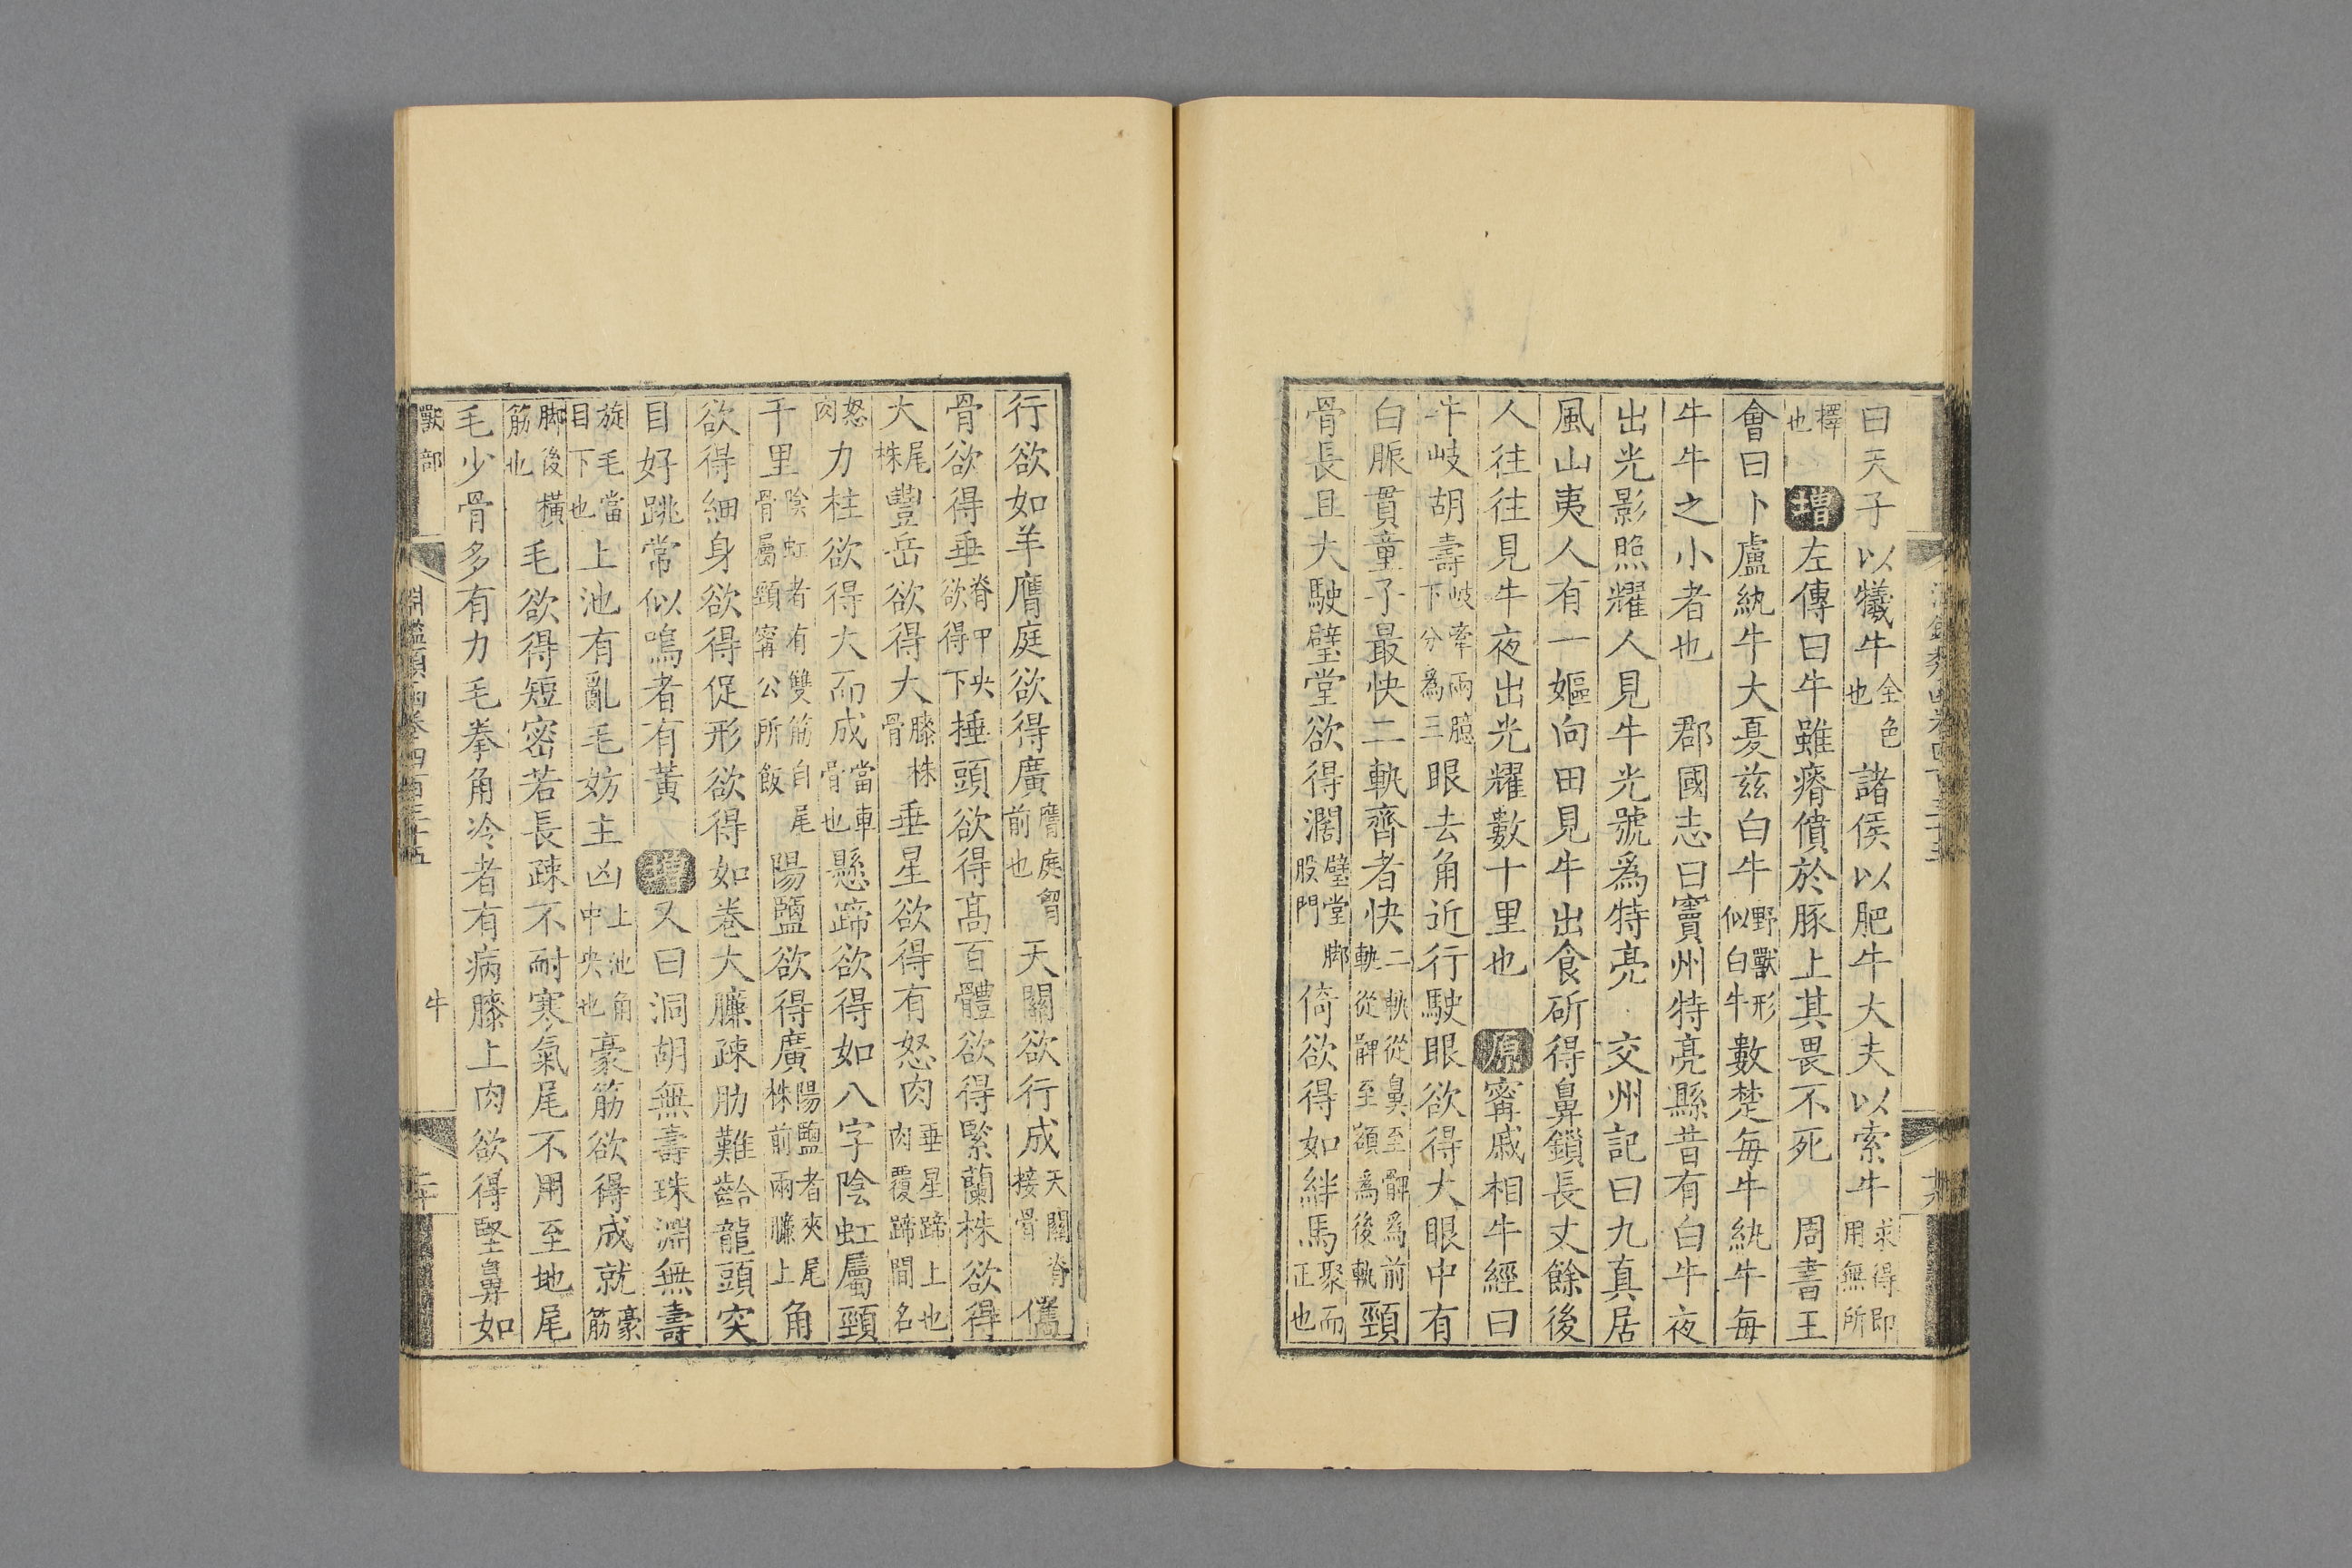 曰天子以犧牛全色也諸侯以肥牛大夫以索牛求得即用無所
擇也增左傳曰牛雖瘠僨於豚上其畏不死 周書王
會曰卜盧紈牛大夏茲白牛野獸形似白牛數楚每牛紈牛每
牛牛之小者也 郡國志曰竇州特亮縣昔有白牛夜
出光影照耀人見牛光號爲特亮 交州記曰九真居
風山夷人有一嫗向田見牛出食斫得鼻鎖長丈餘後
人往往見牛夜出光耀數十里也 原甯戚相牛經曰
牛岐胡壽岐牽兩腋下分爲三眼去角近行駛眼欲得大眼中有
白脈貫童子最快二軌齊者快二軌從鼻至髀爲前軌從髀至額爲後軌頸
骨長且大駛壁堂欲得濶壁堂脚股門倚欲得如絆馬聚而正也
行欲如羊膺庭欲得廣膺庭胷前也天關欲行成天關脊接骨儁
骨欲得垂脊甲央欲得下捶頭欲得髙百體欲得緊蘭株欲得
大尾株豐岳欲得大膝株骨垂星欲得有怒肉垂星蹄上也肉覆蹄間名
怒肉力柱欲得大而成當車骨也懸蹄欲得如八字陰虹屬頸
千里陰虹者有雙筋自尾骨屬頸甯公所飯陽鹽欲得廣陽鹽者夾尾株前兩臁上角
欲得細身欲得促形欲得如卷大臁疎肋難齝龍頭突
目好跳常似鳴者有黃 增又曰洞胡無壽珠淵無壽
旋毛當目下也上池有亂毛妨主凶上池角中央也豪筋欲得成就豪筋
脚後橫筋也毛欲得短密若長疎不耐寒氣尾不用至地尾
毛少骨多有力毛拳角冷者有病膝上肉欲得堅鼻如
獸部 淵鑑類函卷四百三十五 牛 二十